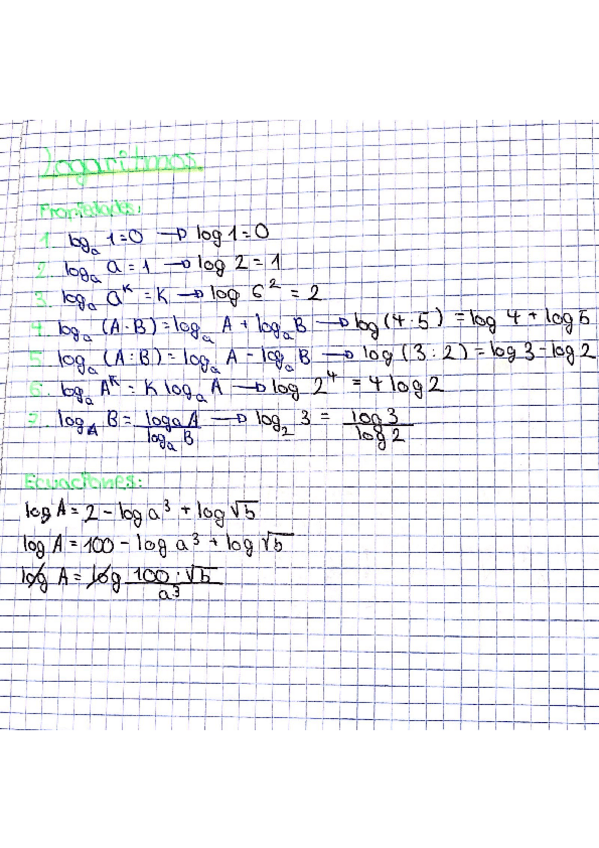 Logaritmos
Propiedades:
1. logₐ 1=0 → log 1=0
2. logₐ a=1 → log 2=1
3. logₐ aᴷ=K → log 6²=2
4. logₐ (A·B)=logₐ A+logₐ B → log(4·5)=log 4+log 5
5. logₐ (A:B)=logₐ A-logₐ B → log(3:2)=log 3-log 2
6. logₐ Aᴷ=K logₐ A → log 2⁴=4 log 2
7. log_A B= logₐ A / logₐ B → log₂ 3 = log 3 / log 2
Ecuaciones:
log A=2-log a³+log √b
log A=100-log a³+log √b
log A=log 100·√b / a³